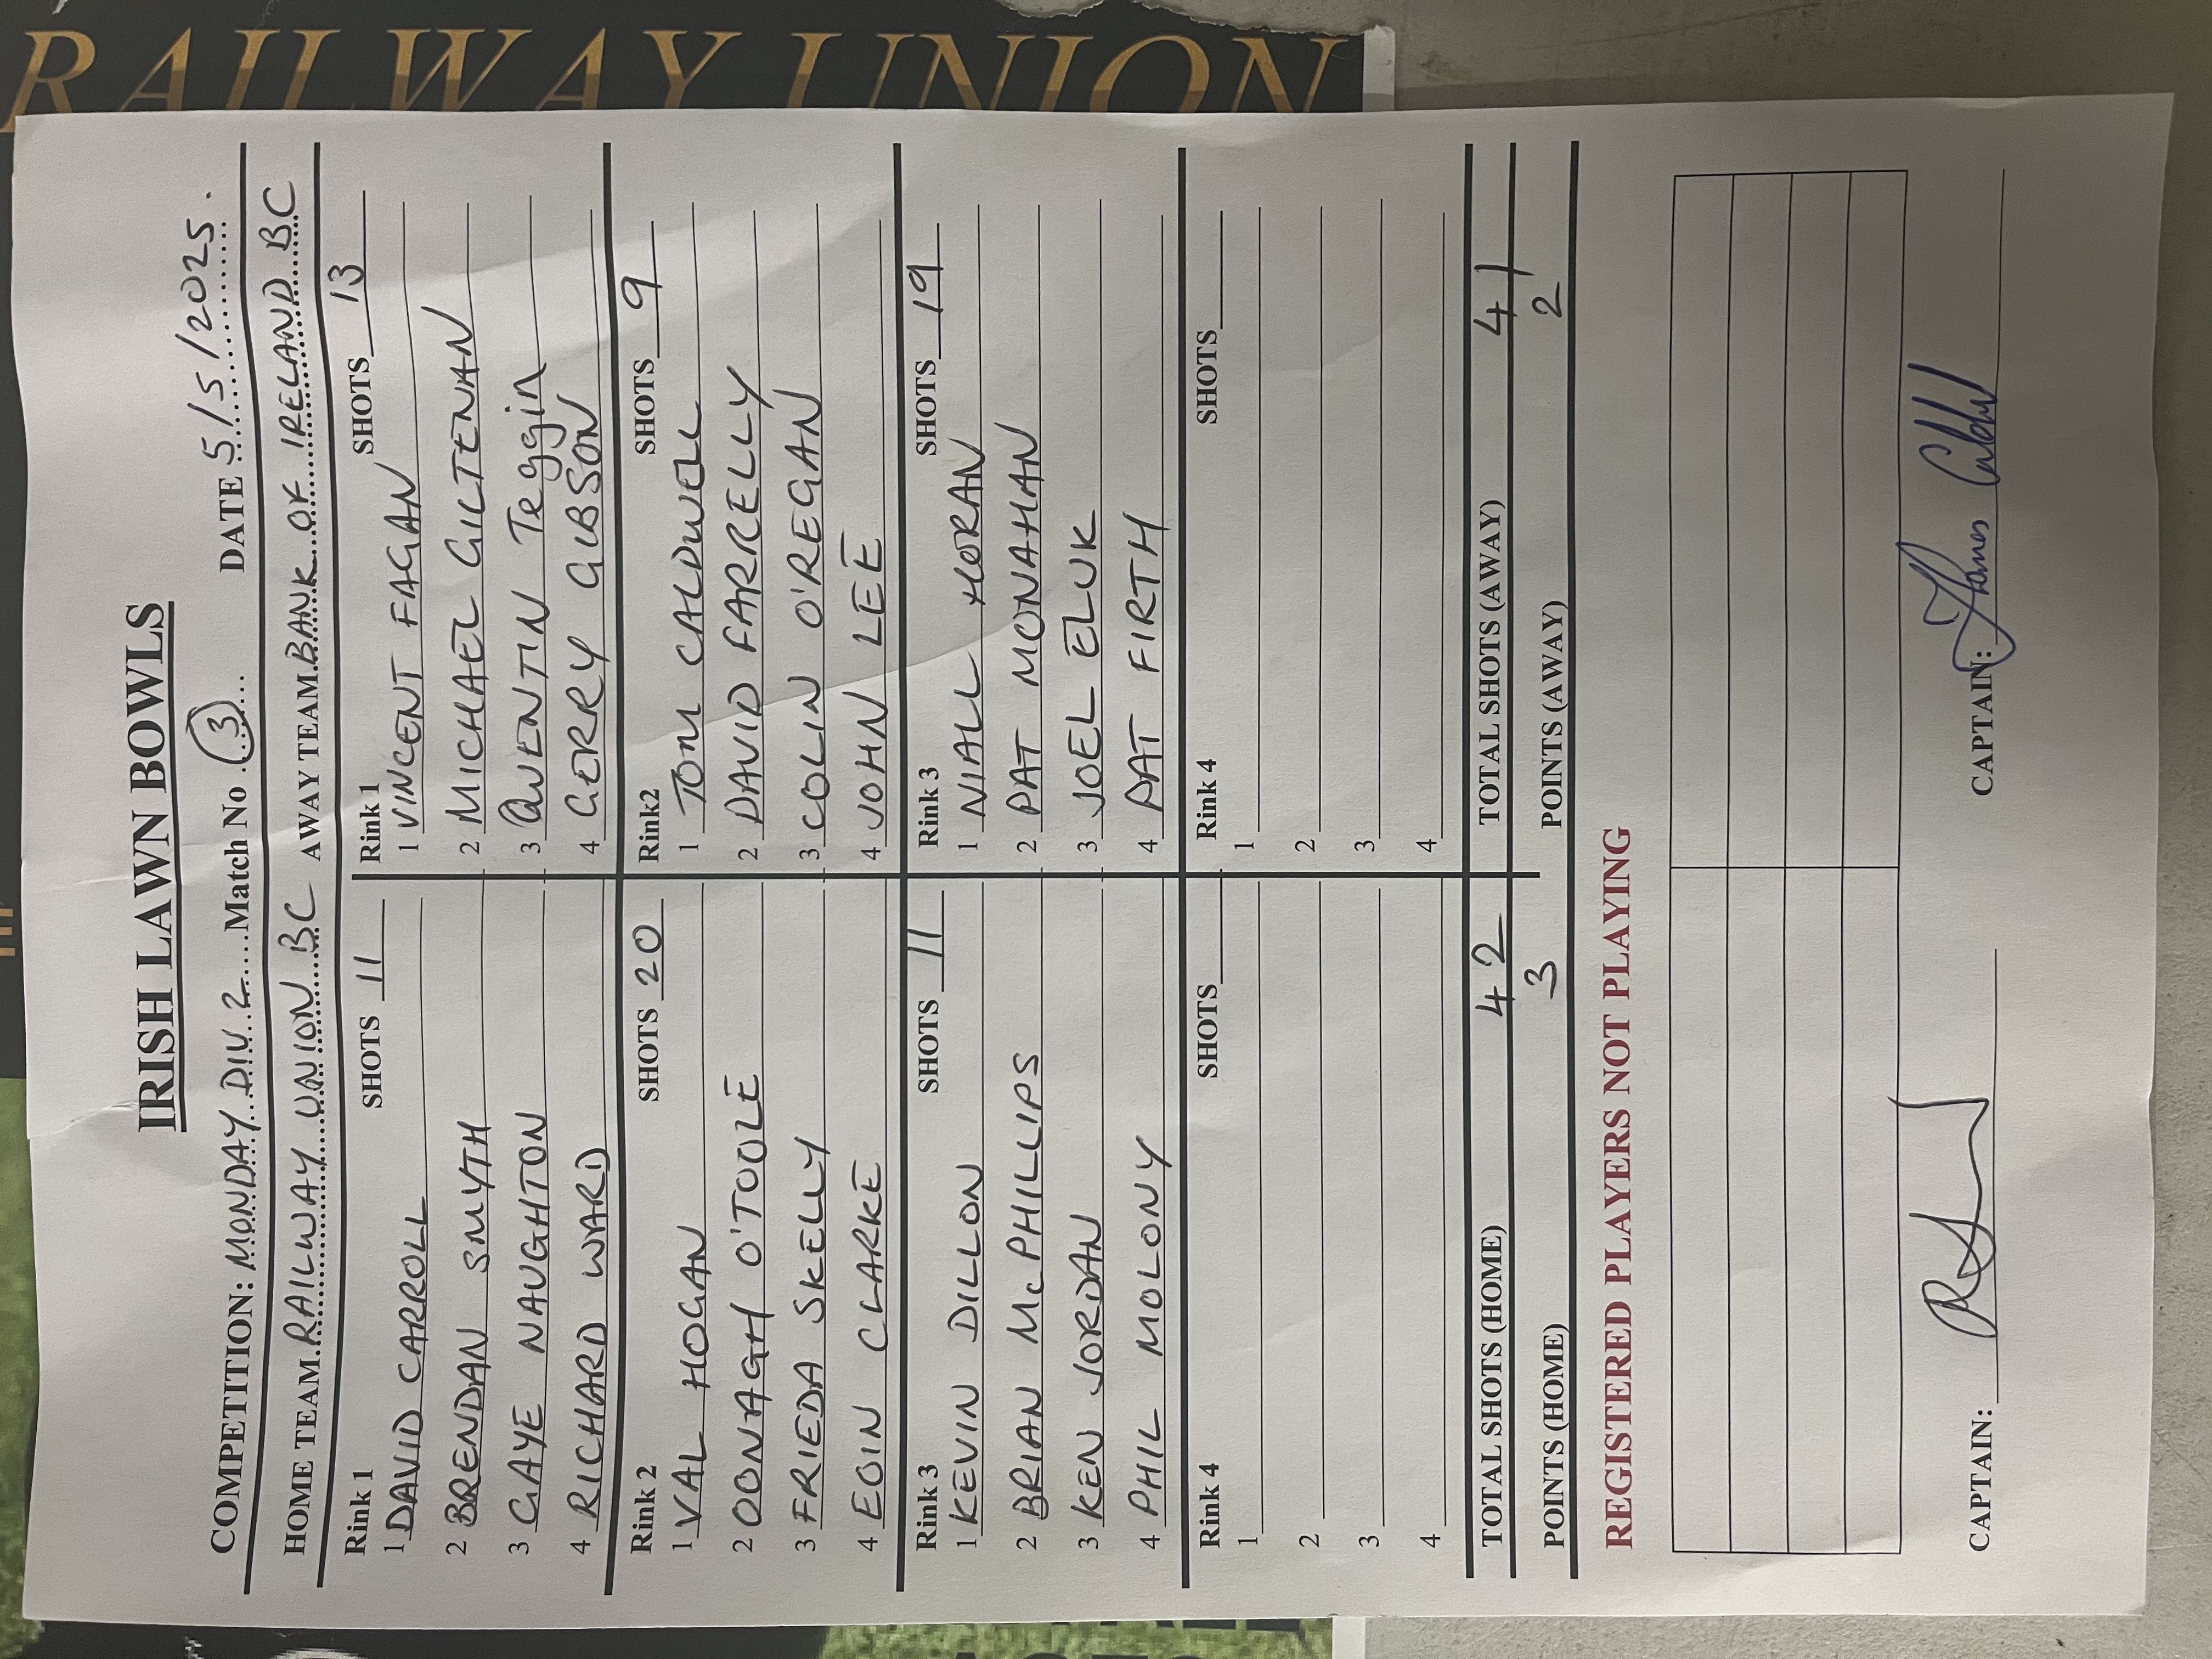 RAILWAY UNION
IRISH LAWN BOWLS
COMPETITION: MONDAY DIV 2 Match No 3 DATE 5/5/2025.
HOME TEAM RAILWAY UNION BC AWAY TEAM BANK OF IRELAND BC
Rink 1 SHOTS 11 Rink 1 SHOTS 13
1 DAVID CARROLL 1 VINCENT FAGAN
2 BRENDAN SMYTH 2 MICHAEL GILTENAN
3 GAYE NAUGHTON 3 QUENTIN Teggin
4 RICHARD WARD 4 GERRY GIBSON
Rink 2 SHOTS 20 Rink2 SHOTS 9
1 VAL HOGAN 1 TOM CALDWELL
2 OONAGH O'TOOLE 2 DAVID FARRELLY
3 FRIEDA SKELLY 3 COLIN O'REGAN
4 EOIN CLARKE 4 JOHN LEE
Rink 3 SHOTS 11 Rink 3 SHOTS 19
1 KEVIN DILLON 1 NIALL HORAN
2 BRIAN McPHILLIPS 2 PAT MONAHAN
3 KEN JORDAN 3 JOEL ELUK
4 PHIL MOLONY 4 PAT FIRTH
Rink 4 SHOTS Rink 4 SHOTS
1 1
2 2
3 3
4 4
TOTAL SHOTS (HOME) 42 TOTAL SHOTS (AWAY) 41
POINTS (HOME) 3 POINTS (AWAY) 2
REGISTERED PLAYERS NOT PLAYING
CAPTAIN: CAPTAIN: